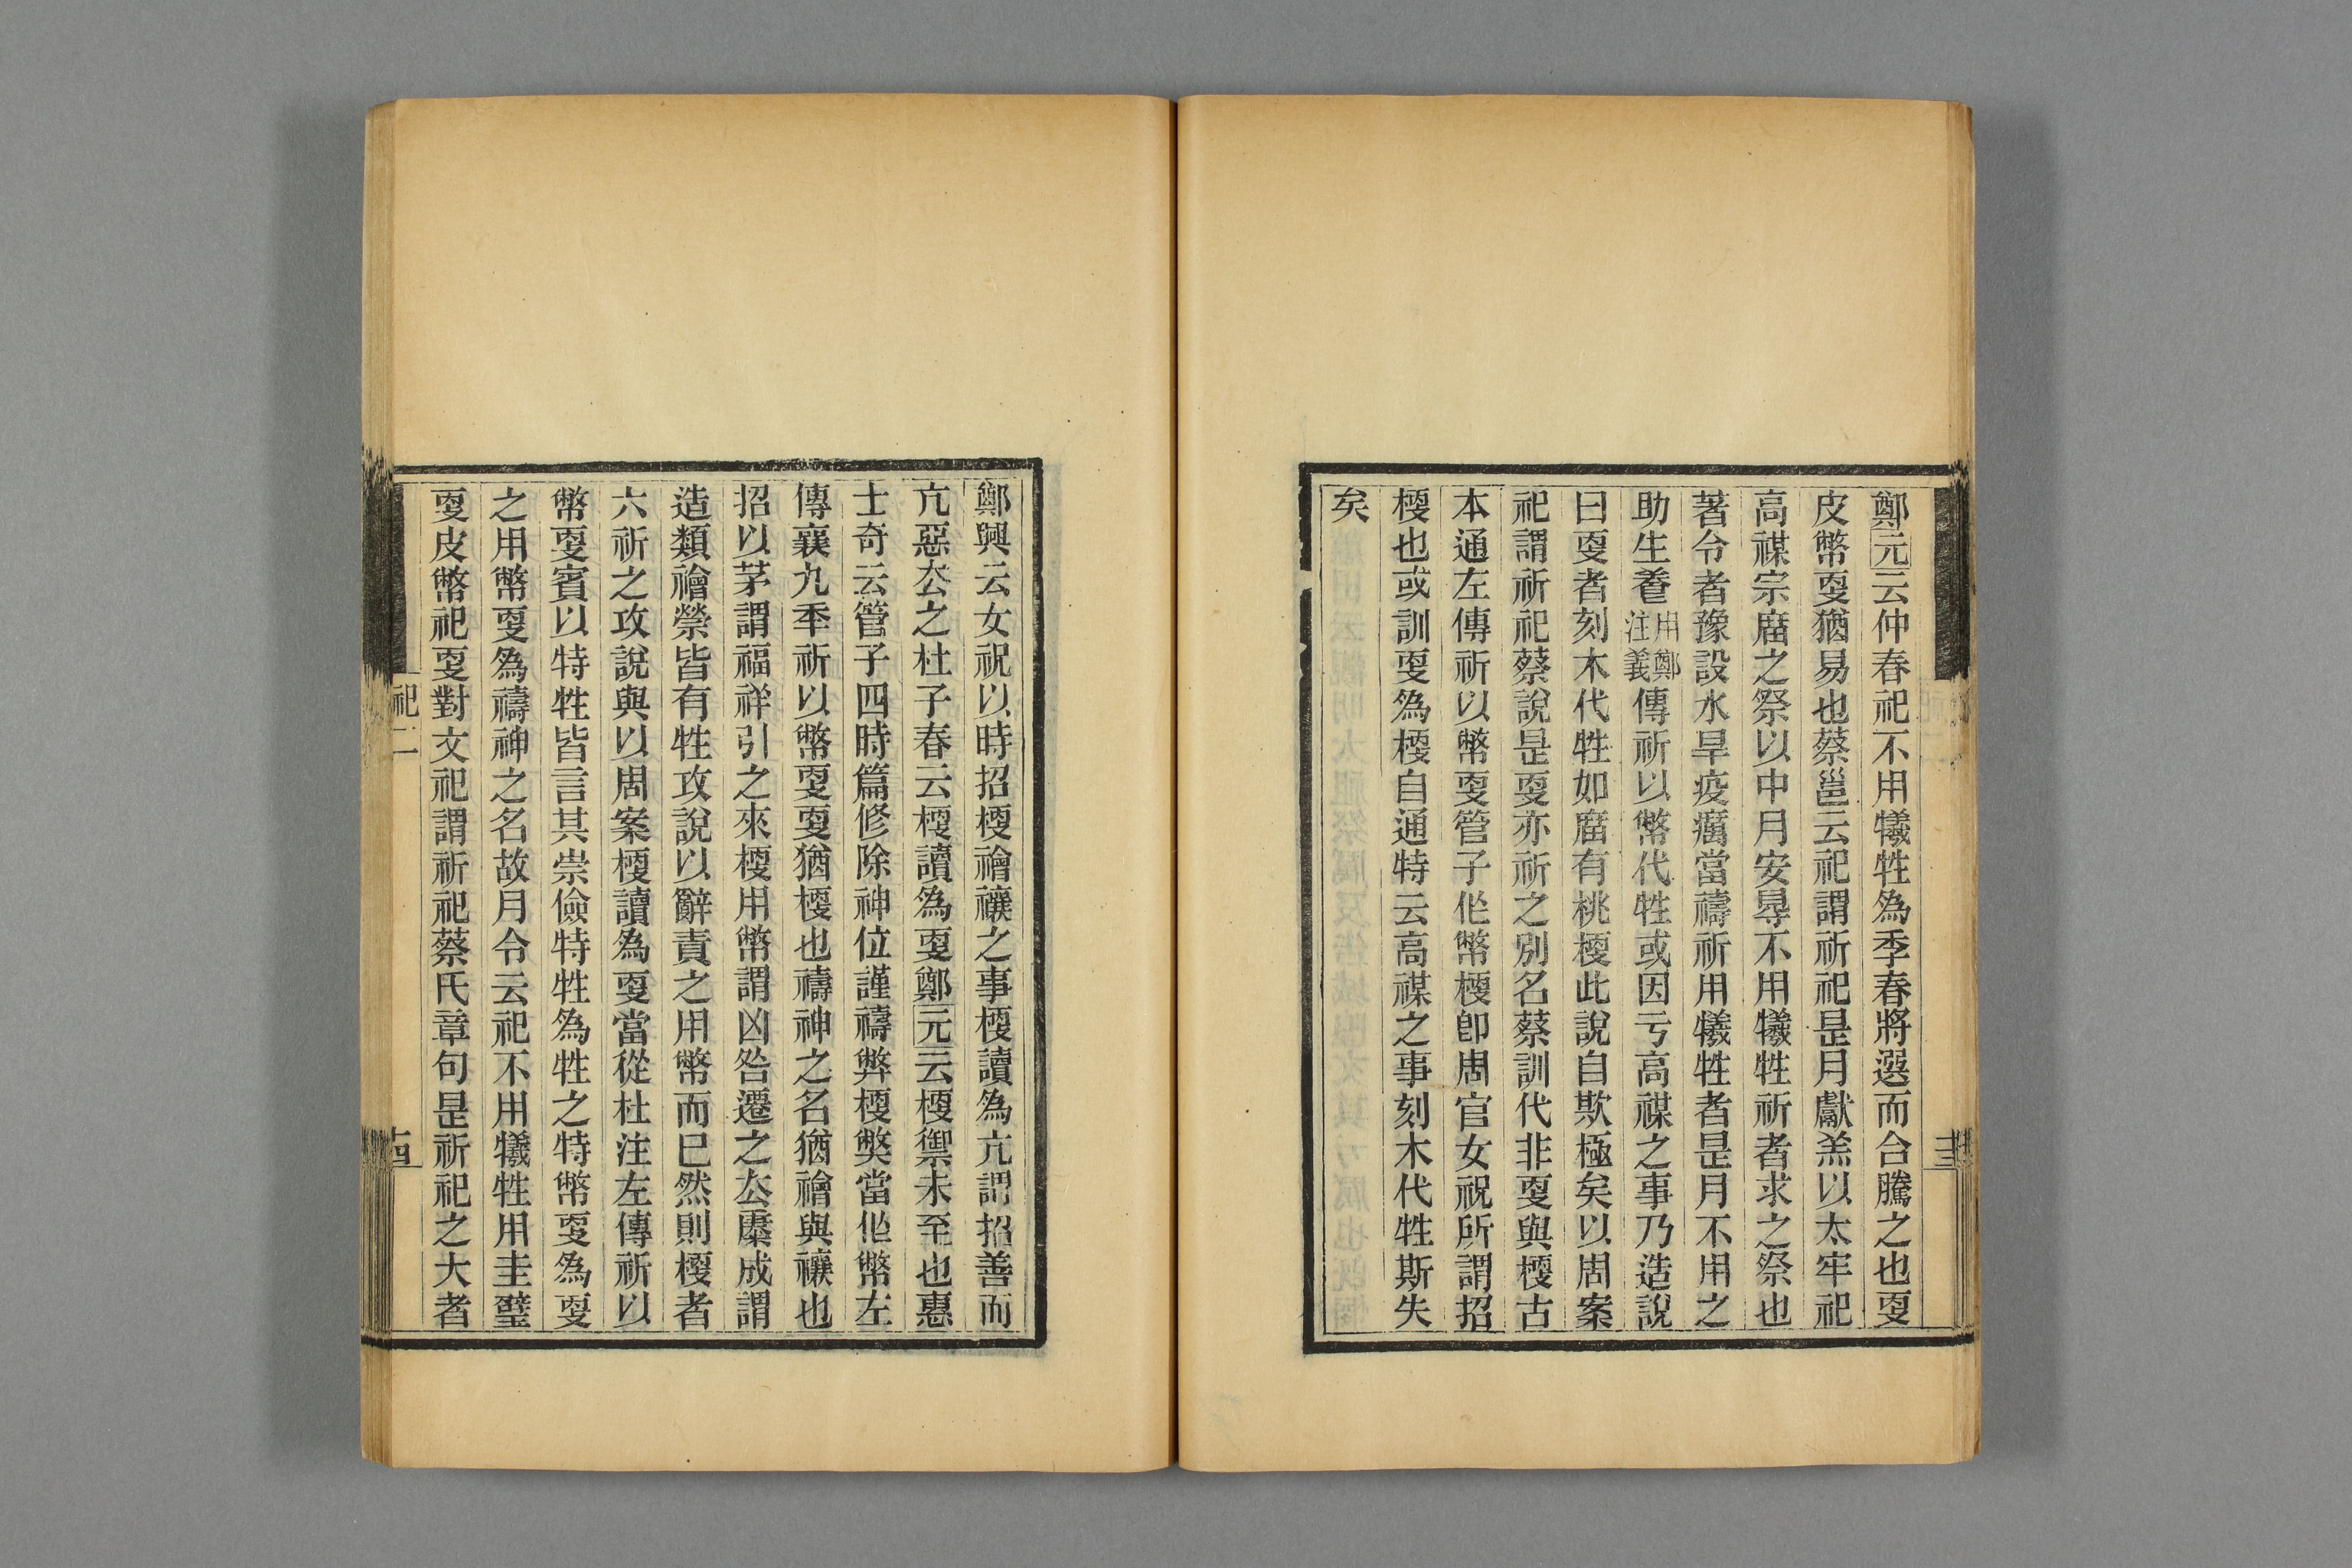 鄭元云仲春祀不用犧牲爲季春將選而合騰之也㪅
皮幣㪅猶易也蔡邕云祀謂祈祀是月獻羔以太牢祀
高禖宗庿之祭以中月安㝵不用犧牲祈者求之祭也
著令者豫設水旱疫癘當禱祈用犧牲者是月不用之
助生養用鄭注義傳祈以幣代牲或因亏高禖之事乃造說
曰㪅者刻木代牲如庿有桃梗此說自欺極矣以周案
祀謂祈祀蔡說是㪅亦祈之別名蔡訓代非㪅與梗古
本通左傳祈以幣㪅管子作幣梗卽周官女祝所謂招
梗也或訓㪅爲梗自通特云高禖之事刻木代牲斯失
矣
鄭興云女祝以時招梗禬禳之事梗讀爲亢謂招善而
亢惡厺之杜子春云梗讀爲㪅鄭元云梗禦未至也惠
士奇云管子四時篇修除神位謹禱弊梗獘當作幣左
傳襄九年祈以幣㪅㪅猶梗也禱神之名猶禬與禳也
招以茅謂福祥引之來梗用幣謂凶咎遷之厺麋成謂
造類禬禜皆有牲攻說以辭責之用幣而已然則梗者
六祈之攻說與以周案梗讀爲㪅當從杜注左傳祈以
幣㪅賓以特牲皆言其崇儉特牲爲牲之特幣㪅爲㪅
之用幣㪅爲禱神之名故月令云祀不用犧牲用圭璧
㪅皮幣祀㪅對文祀謂祈祀蔡氏章句是祈祀之大者
祀二
十四